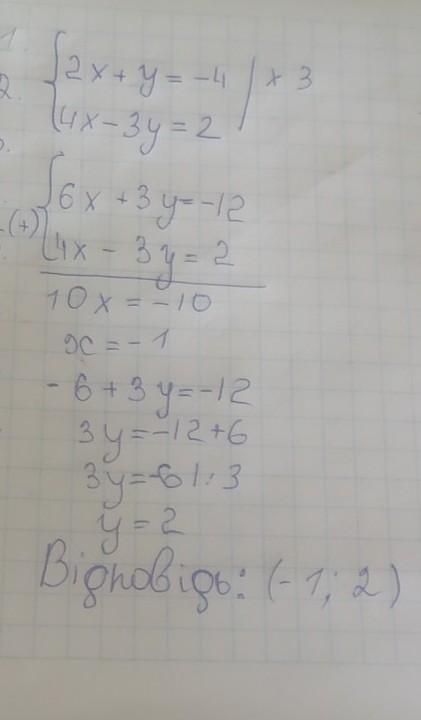 1.
2x + y = -4 | × 3
2.
4x - 3y = 2
6x + 3y = -12
(+)
4x - 3y = 2
10x = -10
x = -1
-6 + 3y = -12
3y = -12 + 6
3y = -6 | : 3
y = 2
Відповідь: (-1; 2)